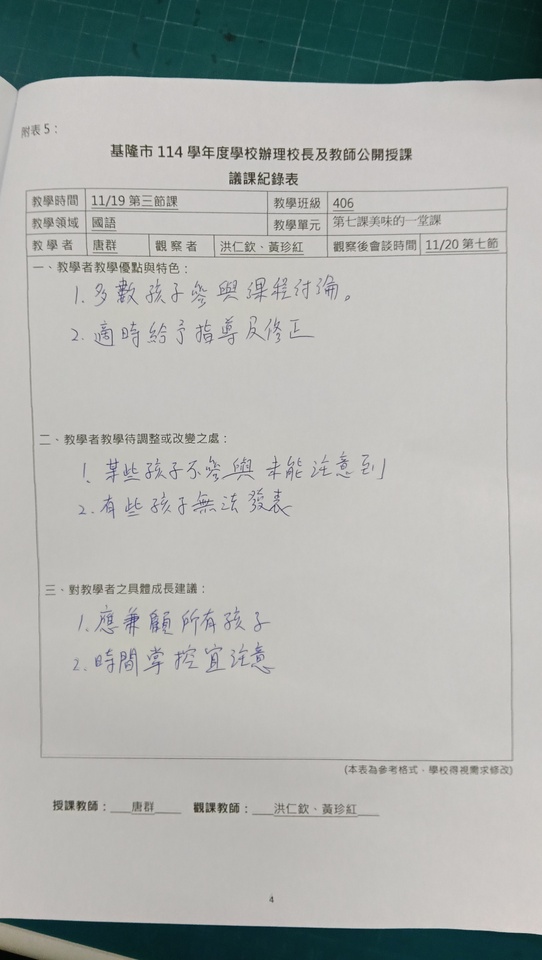 附表 5：
基隆市 114 學年度學校辦理校長及教師公開授課
議課紀錄表
教學時間 11/19 第三節課 教學班級 406
教學領域 國語 教學單元 第七課美味的一堂課
教學者 唐群 觀察者 洪仁欽、黃珍紅 觀察後會談時間 11/20 第七節
一、教學者教學優點與特色：
1. 多數孩子參與課程討論。
2. 適時給予指導及修正
二、教學者教學待調整或改變之處：
1. 某些孩子不參與 未能注意到
2. 有些孩子無法發表
三、對教學者之具體成長建議：
1. 應兼顧所有孩子
2. 時間掌控宜注意
(本表為參考格式，學校得視需求修改)
授課教師：唐群 觀課教師：洪仁欽、黃珍紅
4